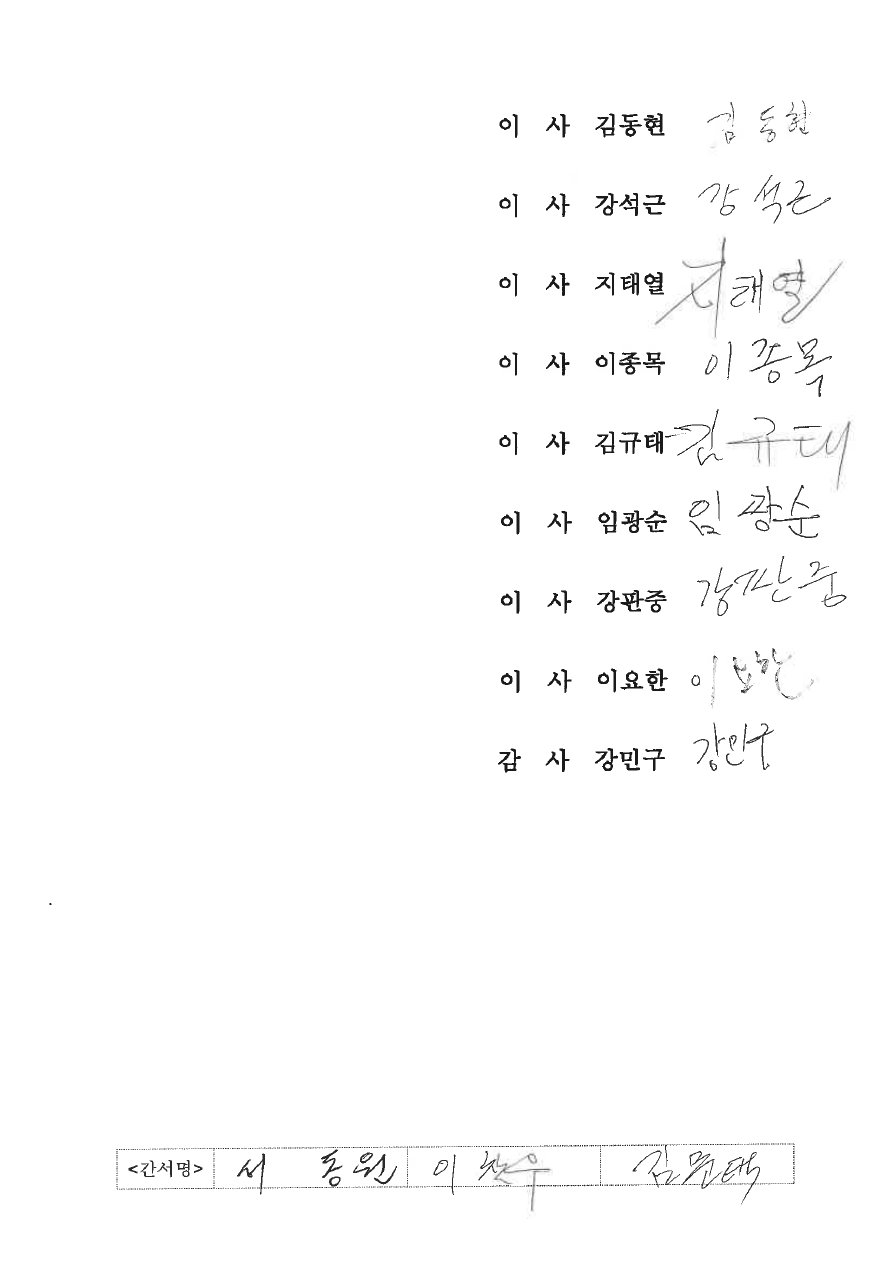 이 사 김동현 김 동현
이 사 강석근 강 석근
이 사 지태열 지태열
이 사 이종목 이 종목
이 사 김규태 김 규태
이 사 임광순 임 광순
이 사 강판중 강판중
이 사 이요한 이 요한
감 사 강민구 강민구
<간서명> 서 동원 이 찬우 김